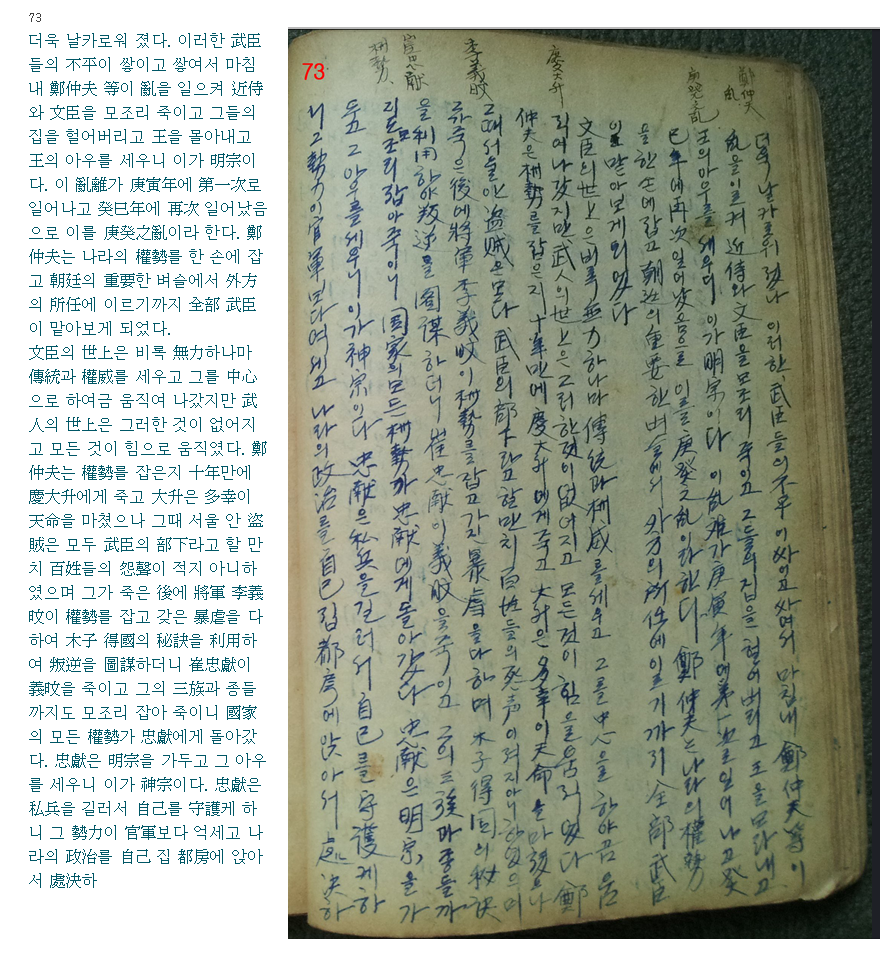 73
더욱 날카로워 졌다. 이러한 武臣
들의 不平이 쌓이고 쌓여서 마침
내 鄭仲夫 等이 亂을 일으켜 近侍
와 文臣을 모조리 죽이고 그들의
집을 헐어버리고 王을 몰아내고
王의 아우를 세우니 이가 明宗이
다. 이 亂離가 庚寅年에 第一次로
일어나고 癸巳年에 再次 일어났음
으로 이를 庚癸之亂이라 한다. 鄭
仲夫는 나라의 權勢를 한 손에 잡
고 朝廷의 重要한 벼슬에서 外方
의 所任에 이르기까지 全部 武臣
이 맡아보게 되었다.
文臣의 世上은 비록 無力하나마
傳統과 權威를 세우고 그를 中心
으로 하여금 움직여 나갔지만 武
人의 世上은 그러한 것이 없어지
고 모든 것이 힘으로 움직였다. 鄭
仲夫는 權勢를 잡은지 十年만에
慶大升에게 죽고 大升은 多幸이
天命을 마쳤으나 그때 서울 안 盜
賊은 모두 武臣의 部下라고 할 만
치 百姓들의 怨聲이 적지 아니하
였으며 그가 죽은 後에 將軍 李義
旼이 權勢를 잡고 갖은 暴虐을 다
하여 木子 得國의 秘訣을 利用하
여 叛逆을 圖謀하더니 崔忠獻이
義旼을 죽이고 그의 三族과 종들
까지도 모조리 잡아 죽이니 國家
의 모든 權勢가 忠獻에게 돌아갔
다. 忠獻은 明宗을 가두고 그 아우
를 세우니 이가 神宗이다. 忠獻은
私兵을 길러서 自己를 守護케 하
니 그 勢力이 官軍보다 억세고 나
라의 政治를 自己 집 都房에 앉아
서 處決하
73
鄭仲夫
亂
庚癸之亂
慶大升
李義旼
崔忠献
权勢
더욱 날카로워 젔다 이러한 武臣들의 不平이 싸이고 싸여서 마침내 鄭仲夫等이
亂을 이르켜 近侍와 文臣을 모조리 죽이고 그들의 집을 헐어버리고 王을 모라내고
王의 아우를 세우니 이가 明宗이다 이 亂離가 庚寅年에 第一次로 일어나고 癸
巳年에 再次 일어낫음으로 이를 庚癸之亂이라 한다 鄭仲夫는 나라의 權勢
을 한 손에 잡고 朝廷의 重要한 벼슬에서 外方의 所任에 이르기까지 全部 武臣
이 맡아보게 되였다
文臣의 世上은 비록 無力하나마 傳統과 权威를 세우고 그를 中心으로 하야끔 움
직여 나갔지만 武人의 世上은 그러한것이 없어지고 모든것이 힘으로 움직였다 鄭
仲夫은 权勢를 잡은지 十年만에 慶大升에게 죽고 大升은 多幸이 天命을 마쳤으나
그때 서울안 盜賊은 모다 武臣의 部下라고 할만치 百姓들의 怨声이 적지아니하였으며
그가 죽은 後에 將軍 李義旼이 权勢를 잡고 가진 暴虐을 다하며 木子得国의 秘訣
을 利用하야 叛逆을 图謀하더니 崔忠献이 義旼을 죽이고 그의 三族과 종들까
지도 모조리 잡아 죽이니 国家의 모든 权勢가 忠献에게 돌아갔다 忠献은 明宗을 가
두고 그 아우를 세우니 이가 神宗이다 忠献은 私兵을 길러서 自己를 守護케 하
니 그 勢力이 官軍보다 억세고 나라의 政治를 自己집 都房에 앉아서 處決하